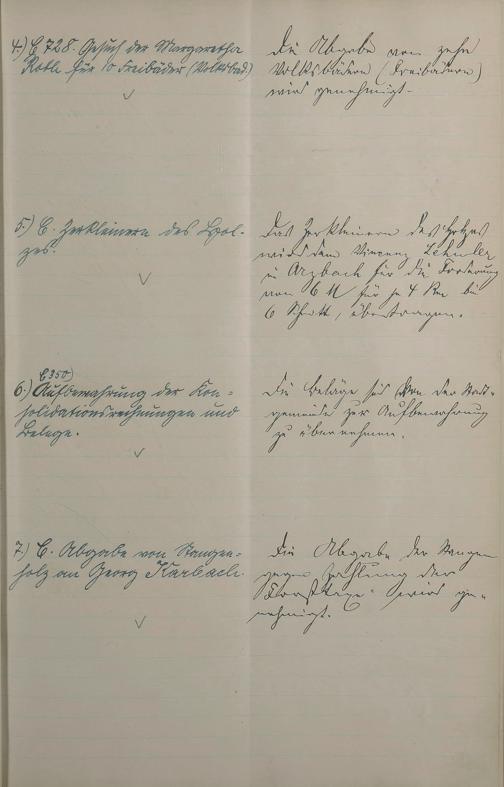 4.) E 728. Gesuch der Margaretha
Roth für 10 Freibäder (Volksbad.)
Die Abgabe von zehn
Volksbädern (Freibädern)
wird genehmigt.
5.) E. Zerkleinern des Hol-
zes.
Das Zerkleinern des Holzes
wird dem Vincenz
in Arzbach für die Forderung
von 6 M für je 4 Rm bei
6 Schnitt, übertragen.
E 350)
6.) Aufbewahrung der Kon-
solidationsrechnungen und
Belege.
Die Beläge sind von der Stadt-
gemeinde zur Aufbewahrung
zu übernehmen.
7.) E. Abgabe von Stangen-
holz an Georg Karbach.
Die Abgabe der Stangen
gegen Zahlung der
Forsttaxe wird ge-
nehmigt.